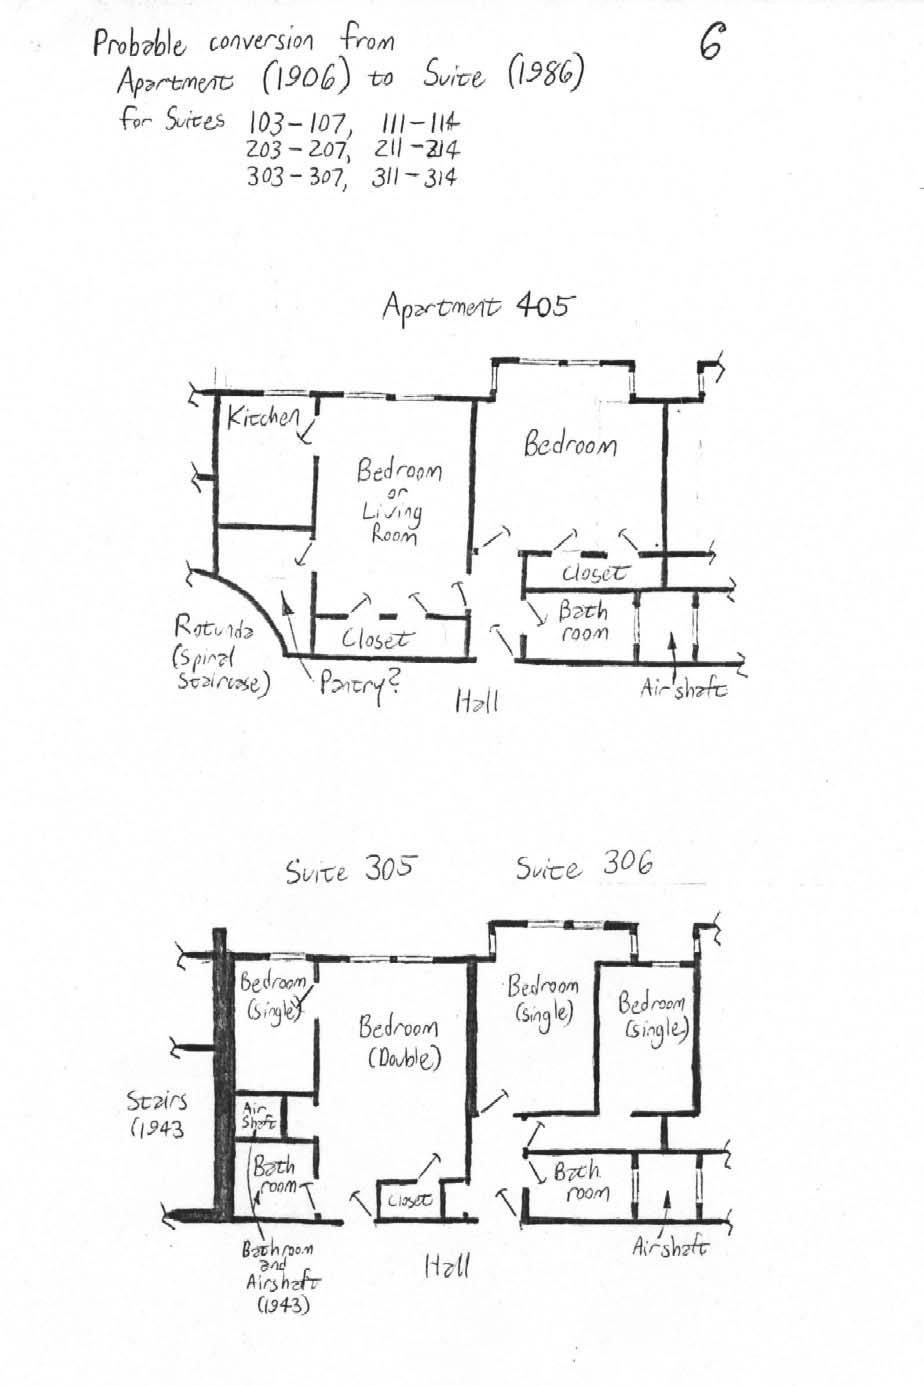 6
Probable conversion from
Apartment (1906) to Suite (1986)
for Suites 103-107, 111-114
203-207, 211-214
303-307, 311-314
Apartment 405
Kitchen
Bedroom
or
Living
Room
Bedroom
Closet
Closet
Bath
room
Rotunda
(Spiral
Staircase)
Pantry?
Hall
Air shaft
Suite 305
Suite 306
Bedroom
(single)
Bedroom
(Double)
Bedroom
(single)
Bedroom
(single)
Stairs
(1943
Air
Shaft
Bath
room
Closet
Bath
room
Bathroom
and
Airshaft
(1943)
Hall
Airshaft